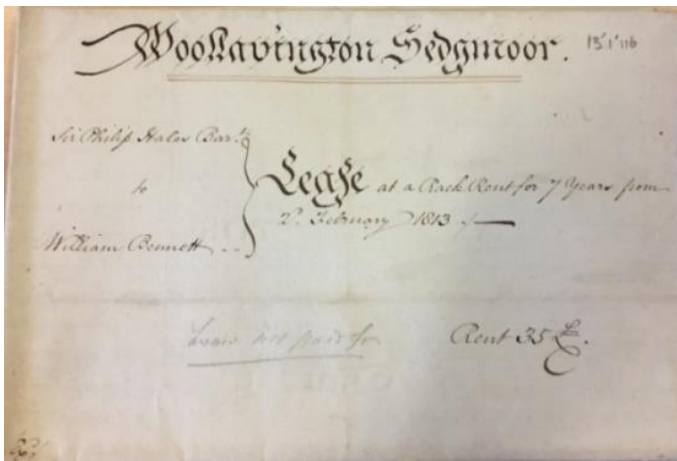 Woolavington Sedgmoor.
Sir Philip Hales Bar.t
to
William Bennett
Lease at a Rack Rent for 7 Years from
2.d February 1813
Lease not paid for
Rent 35 £.